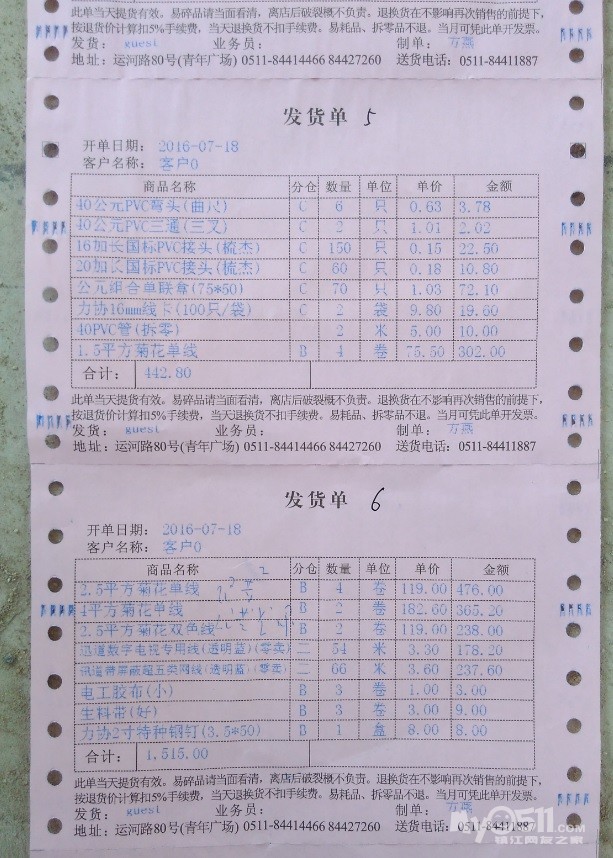 此单当天提货有效。易碎品请当面看清，离店后破裂概不负责。退换货在不影响再次销售的前提下，
按退货价计算扣5%手续费，当天退换货不扣手续费。易耗品、拆零品不退。当月可凭此单开发票。
发货： guest 业务员： 制单： 方燕
地址：运河路80号(青年广场) 0511-84414466 84427260 送货电话：0511-84411887
发货单 5
开单日期： 2016-07-18
客户名称： 客户0
商品名称 分仓 数量 单位 单价 金额
40公元PVC弯头(曲尺) C 6 只 0.63 3.78
40公元PVC三通(三叉) C 2 只 1.01 2.02
16加长国标PVC接头(梳杰) C 150 只 0.15 22.50
20加长国标PVC接头(梳杰) C 60 只 0.18 10.80
公元组合单联盒(75*50) C 70 只 1.03 72.10
力协16mm线卡(100只/袋) C 2 袋 9.80 19.60
40PVC管(拆零) 2 米 5.00 10.00
1.5平方菊花单线 B 4 卷 75.50 302.00
合计： 442.80
此单当天提货有效。易碎品请当面看清，离店后破裂概不负责。退换货在不影响再次销售的前提下，
按退货价计算扣5%手续费，当天退换货不扣手续费。易耗品、拆零品不退。当月可凭此单开发票。
发货： guest 业务员： 制单： 方燕
地址：运河路80号(青年广场) 0511-84414466 84427260 送货电话：0511-84411887
发货单 6
开单日期： 2016-07-18
客户名称： 客户0
商品名称 分仓 数量 单位 单价 金额
2.5平方菊花单线 B 4 卷 119.00 476.00
4平方菊花单线 B 2 卷 182.60 365.20
2.5平方菊花双色线 B 2 卷 119.00 238.00
迅道数字电视专用线(透明蓝)(零卖) 二 54 米 3.30 178.20
讯道带屏蔽超五类网线(透明蓝)(零卖) 二 66 米 3.60 237.60
电工胶布(小) B 3 卷 1.00 3.00
生料带(好) B 3 卷 3.00 9.00
力协2寸特种钢钉(3.5*50) B 1 盒 8.00 8.00
合计： 1,515.00
此单当天提货有效。易碎品请当面看清，离店后破裂概不负责。退换货在不影响再次销售的前提下，
按退货价计算扣5%手续费，当天退换货不扣手续费。易耗品、拆零品不退。当月可凭此单开发票。
发货： guest 业务员： 制单： 方燕
地址：运河路80号(青年广场) 0511-84414466 84427260 送货电话：0511-84411887
My0511.com
镇江网友之家